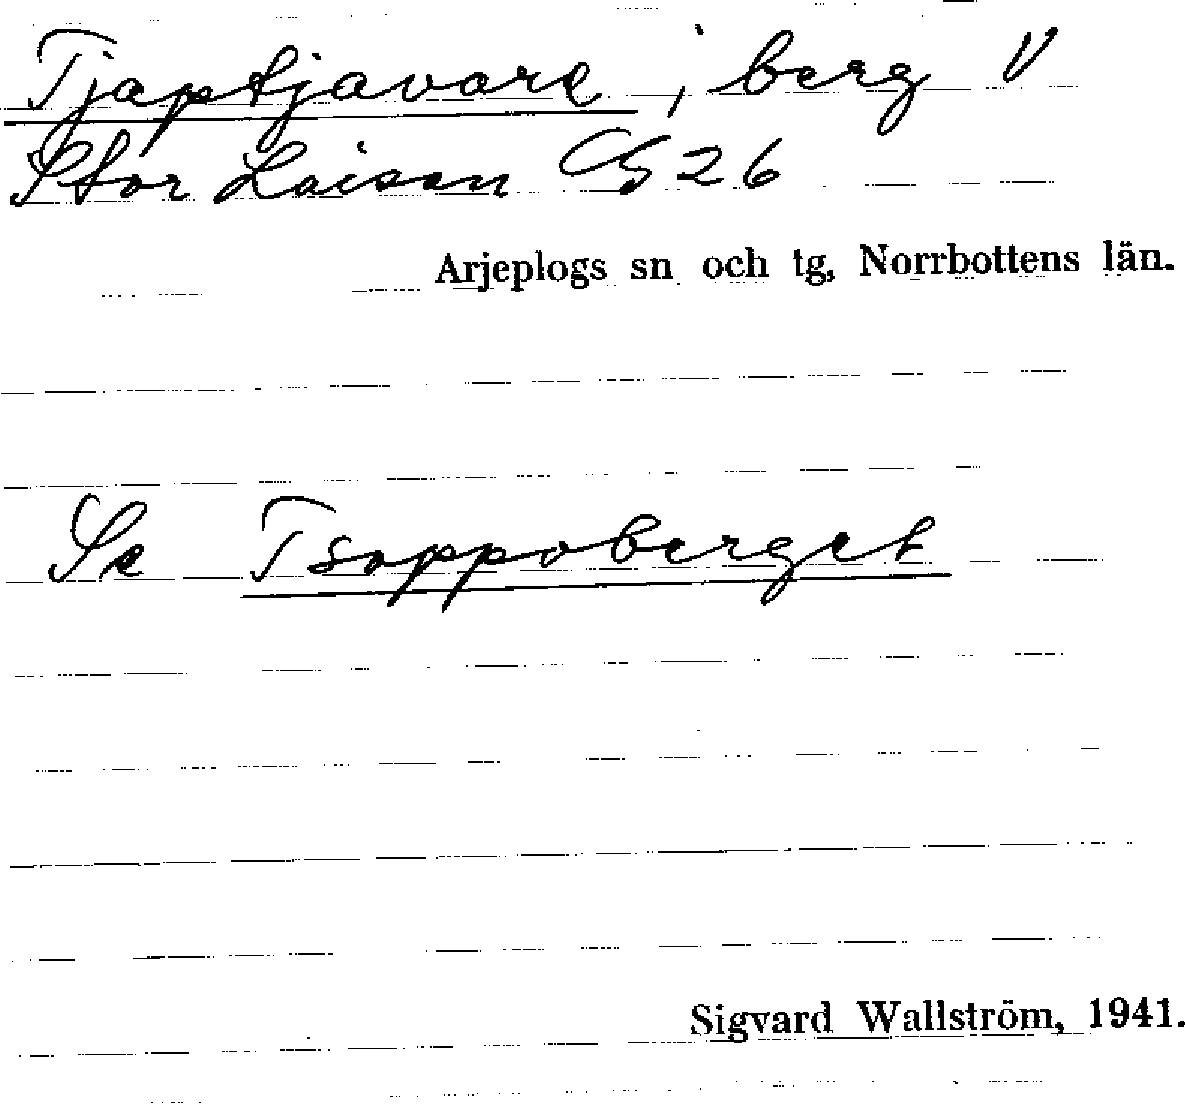 Tjaptjavare; berg V
Stor Laisan C5 26
Arjeplogs sn och tg, Norrbottens län.
Se Tsappoberget
Sigvard Wallström, 1941.